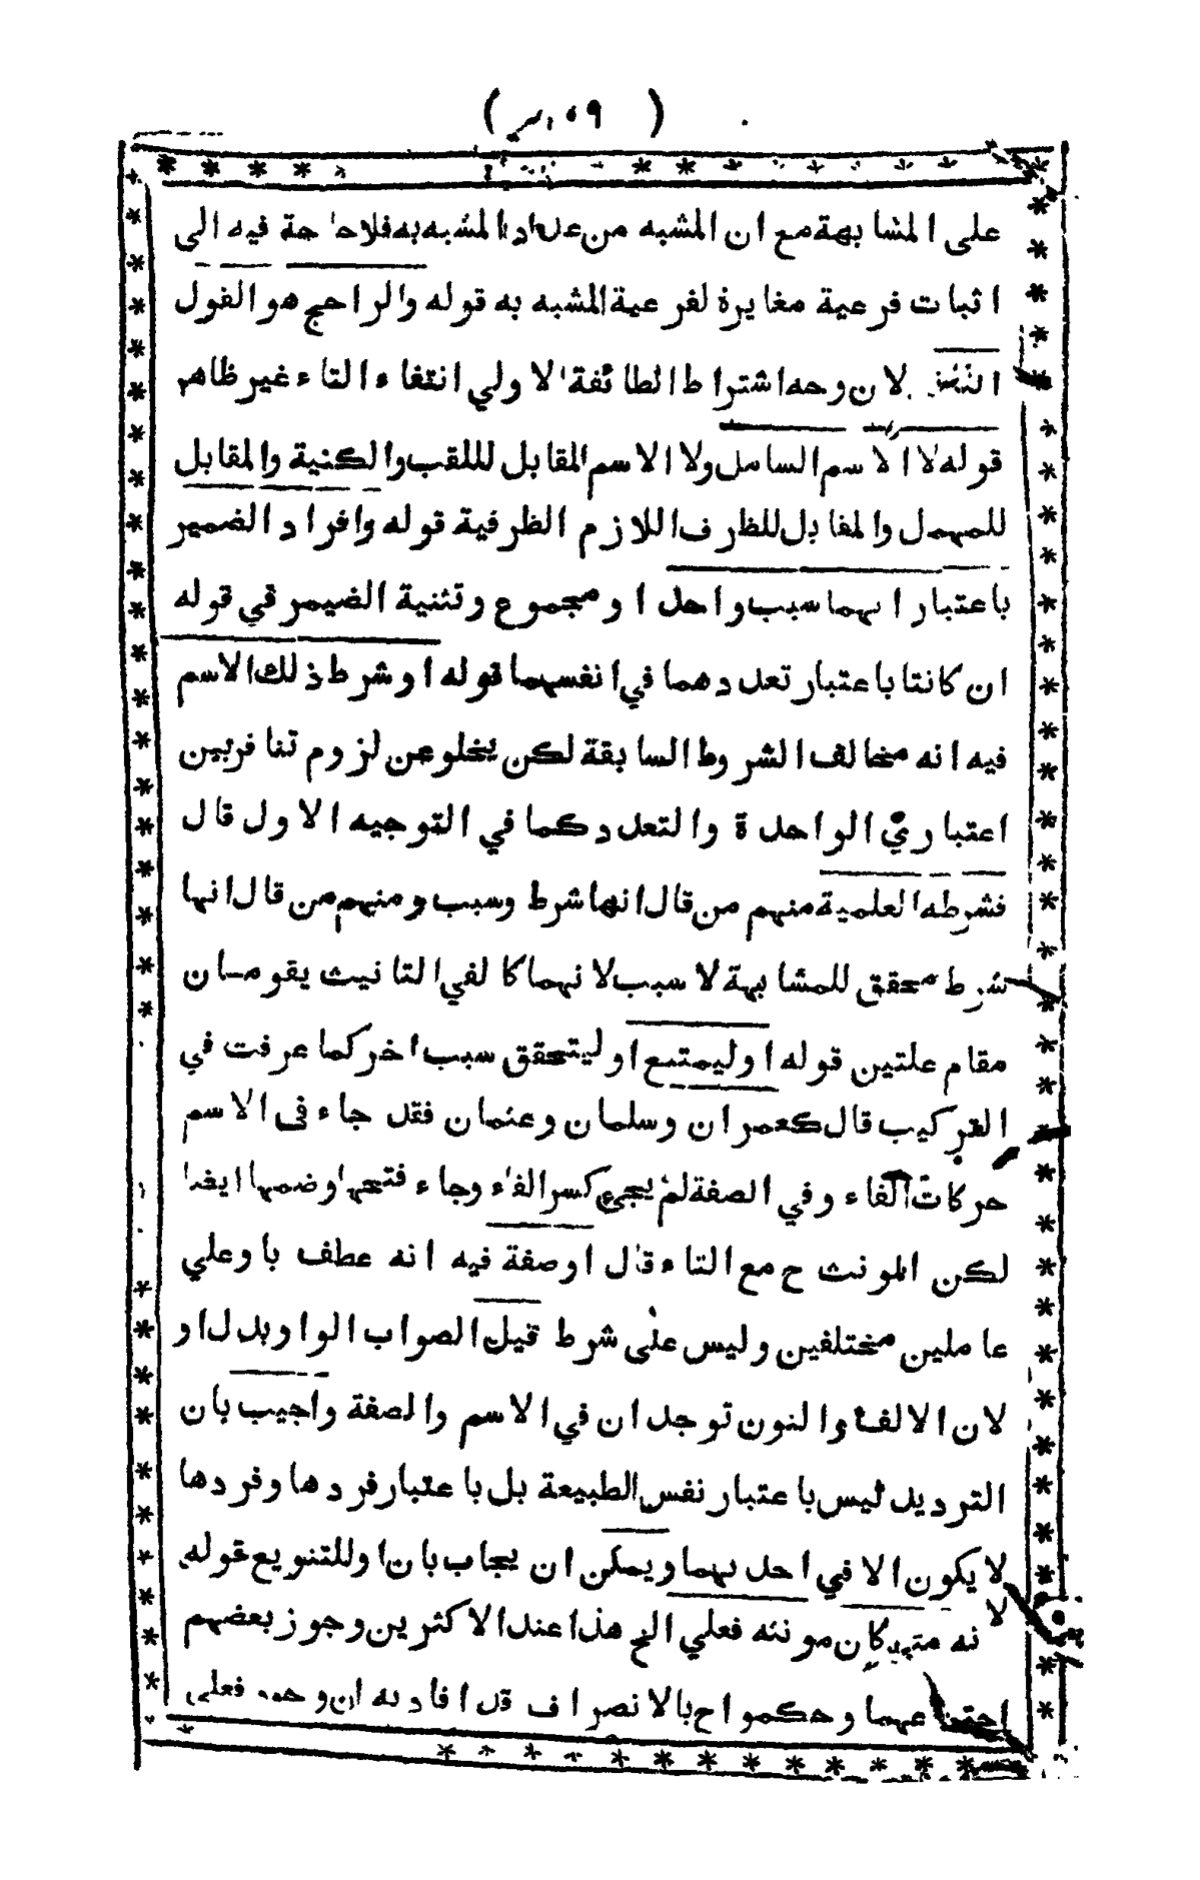 ( ٥٩ )
على المشابهة مع ان المشبه من عداد المشبه به فلا حاجة فيه الى
اثبات فرعية مغايرة لفرعية المشبه به قوله والراجح هو القول
لان وجه اشتراط الطائفة الاولي انتفاء التاء غير ظاهر
قوله لا الاسم الشامل ولا الاسم المقابل لللقب والكنية والمقابل
للمهمل والمقابل للظرف اللازم الظرفية قوله وافراد الضمير
باعتبار انهما سبب واحد او مجموع وتثنية الضيمر في قوله
ان كانتا باعتبار تعددهما في انفسهما قوله او شرط ذلك الاسم
فيه انه مخالف الشروط السابقة لكن يخلو عن لزوم تنافربين
اعتباري الواحدة والتعدد كما في التوجيه الاول قال
فشرطه العلمية منهم من قال انها شرط وسبب ومنهم من قال انها
شرط محقق للمشابهة لا سبب لانهما كالفي التانيث يقومان
مقام علتين قوله اوليمتنع او ليتحقق سبب اخر كما عرفت في
التركيب قال كعمران وسلمان وعثمان فقد جاء في الاسم
حركات الفاء وفي الصفة لم يجيء كسر الفاء وجاء فتحها وضمها ايضا
لكن المونث ح مع التاء قال اوصفة فيه انه عطف باوعلي
عاملين مختلفين وليس على شرط قيل الصواب الواو بدل او
لان الالف والنون توجدان في الاسم والصفة واجيب بان
الترديد ليس باعتبار نفس الطبيعة بل باعتبار فردها وفردها
لا يكون الا في احديهما ويمكن ان يجاب بان او للتنويع قوله
لانه متى كان مونثه فعلي الخ هذا عند الاكثرين وجوز بعضهم
عهما وحكمواح بالانصراف قد افاد به ان وجود فعلى